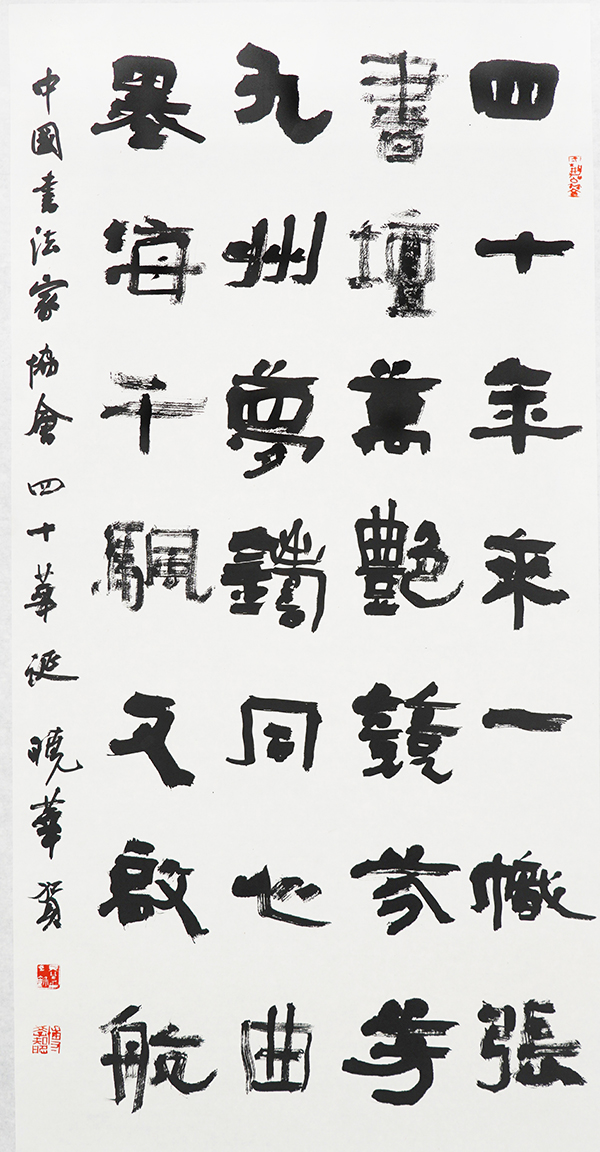 四十年來一幟張
書壇萬艷競芬芳
九州夢鑄同心曲
墨海千颿又啟航
中國書法家協會四十華誕 曉華賀